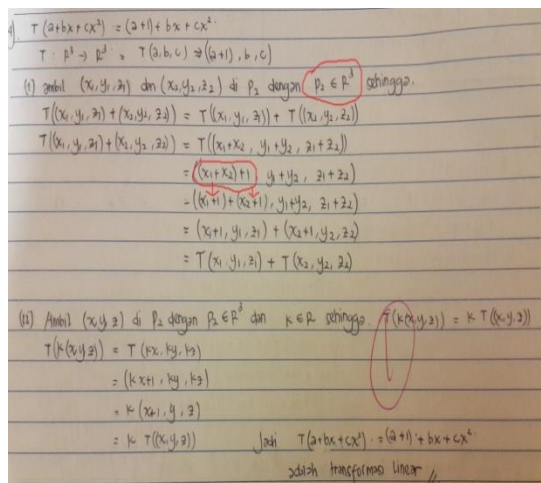 4). T(a+bx+cx² = (a+1)+bx+cx².
T : R³ → R³ = T(a,b,c) ⇒ ((a+1), b, c)
(i) ambil (x₁,y₁,z₁) dan (x₂,y₂,z₂) di P₂ dengan P₂ ∈ R³ sehingga.
T((x₁,y₁,z₁)+(x₂,y₂,z₂)) = T((x₁,y₁,z₁)) + T((x₂,y₂,z₂))
T((x₁,y₁,z₁)+(x₂,y₂,z₂)) = T((x₁+x₂, y₁+y₂, z₁+z₂))
= ((x₁+x₂)+1 y₁+y₂, z₁+z₂)
= (x₁+1)+(x₂+1), y₁+y₂, z₁+z₂)
= (x₁+1, y₁, z₁) + (x₂+1, y₂, z₂)
= T(x₁,y₁,z₁) + T(x₂,y₂,z₂)
(ii) Ambil (x,y,z) di P₂ dengan P₂ ∈ R³ dan k ∈ R sehingga. T(k(x,y,z)) = k T((x,y,z))
T(k(x,y,z)) = T(kx, ky, kz)
= (kx+1, ky, kz)
= k(x+1, y, z)
= k T((x,y,z)) Jadi T(a+bx+cx²) = (a+1)+bx+cx²
adalah transformasi linear //